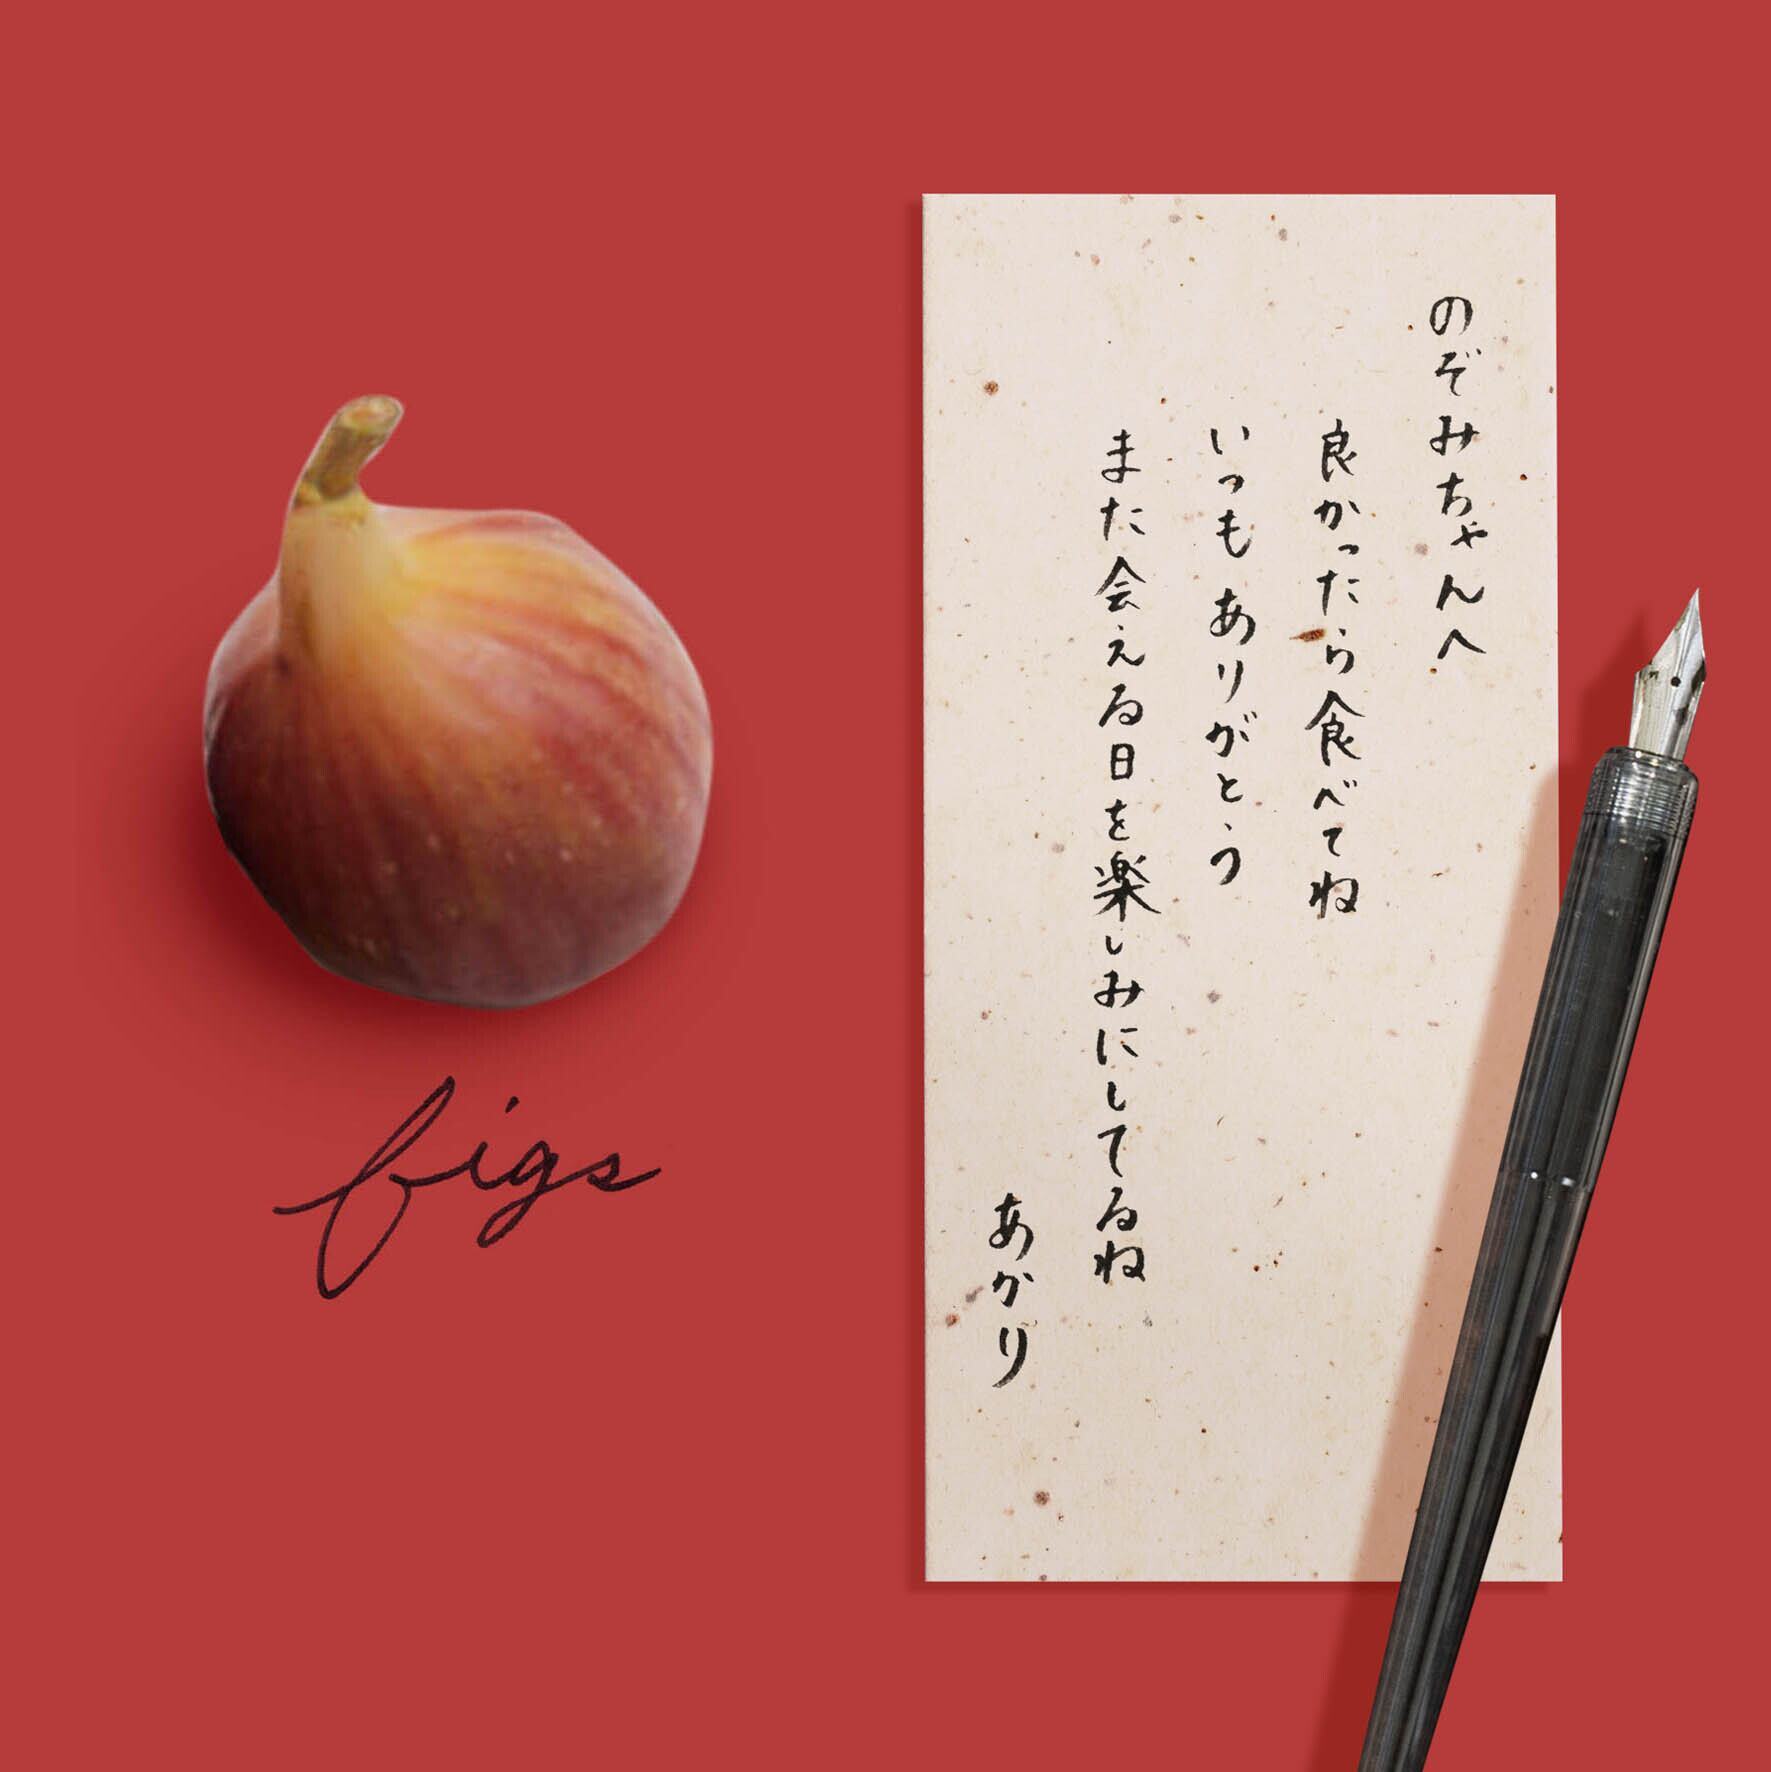 のぞみちゃんへ
良かったら食べてね
いつもありがとう
また会える日を楽しみにしてるね
あかり
figs